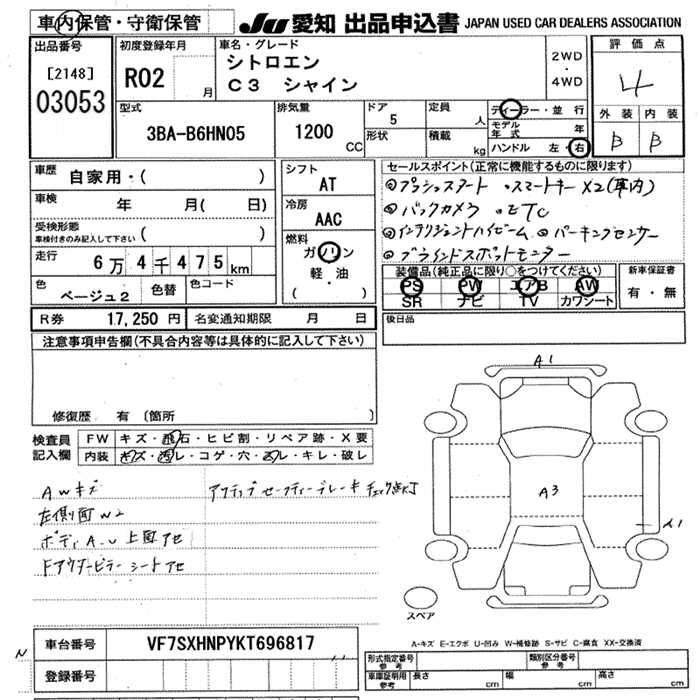 車内保管・守衛保管 JU 愛知 出品申込書 JAPAN USED CAR DEALERS ASSOCIATION
出品番号 初度登録年月 車名・グレード 評価点
[2148] R02 月 シトロエン 2WD・4WD 4
03053 C3 シャイン
型式 排気量 ドア 定員 ディーラー・並行 外装 内装
3BA-B6HN05 1200 CC 5 人 モデル年式 年 B B
形状 積載 kg ハンドル 左・右
車歴 自家用・( ) シフト AT セールスポイント(正常に機能するものに限ります)
車検 年 月( 日) 冷房 AAC ◎プッシュスタート ・スマートキー×2(車内)
受検形態 車検付きのみ記入して下さい ( ) 燃料 ◎バックカメラ ・ETC
走行 6万4千475km ガソリン ◎インテリジェントハイビーム ◎パーキングセンサー
軽・油 ( ) ◎ブラインドスポットモニター
色 ベージュ2 色替 色コード 装備品(純正品に限り○をつけてください) 新車保証書
PS PW エアB AW 有・無
SR ナビ TV カワシート
R券 17,250円 名変通知期限 月 日 後日品
注意事項申告欄(不具合内容等は具体的に記入して下さい)
修復歴 有 〔箇所 〕
検査員記入欄 FW キズ・飛石・ヒビ割・リペア跡・X要
内装 キズ・汚レ・コゲ・穴・スレ・キレ・破レ
AWキズ アクティブセーフティーブレーキチェック点灯
左側面W2
ボディA・U 上面アセ
Fアウターピラー シートアセ
A1
A3
A1
スペア
A-キズ E-エクボ U-凹み W-補修跡 S-サビ C-腐食 XX-交換済
車台番号 VF7SXHNPYKT696817
N 登録番号
形式指定番号 参考 類別区分番号 参考
車庫証明用 参考 長さ cm 幅 cm 高さ cm